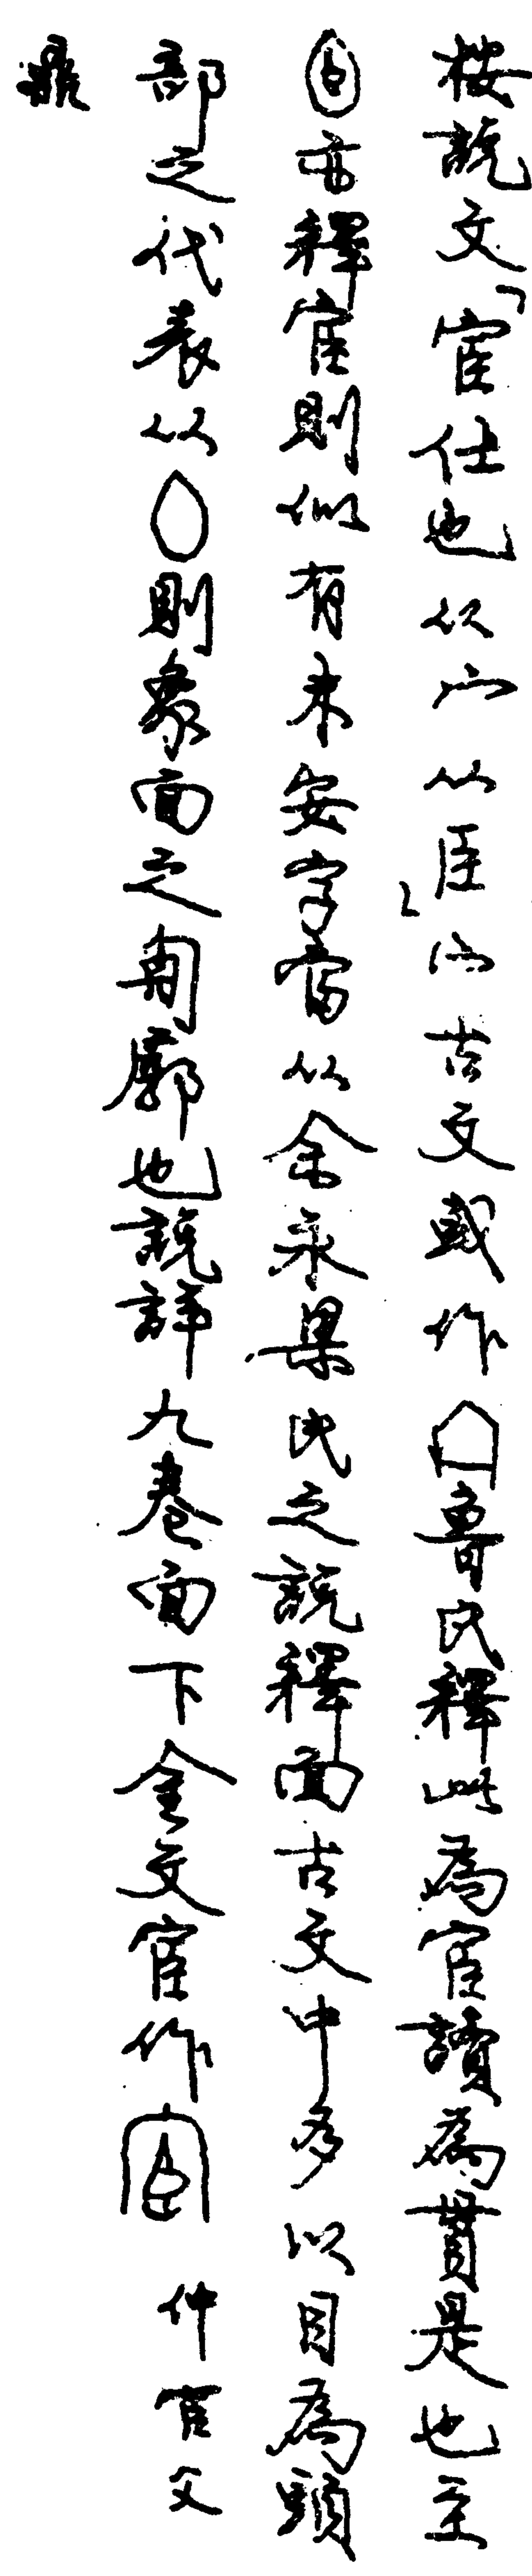 按說文「宦仕也从宀从臣」宀古文或作魯氏釋此為宦讀為貫是也至
亦釋宦則似有未安字當以余永梁氏之說釋面古文中多以目為頭
部之代表从則象面之匡廓也說詳九卷面下金文宦作 仲宦父
鼎